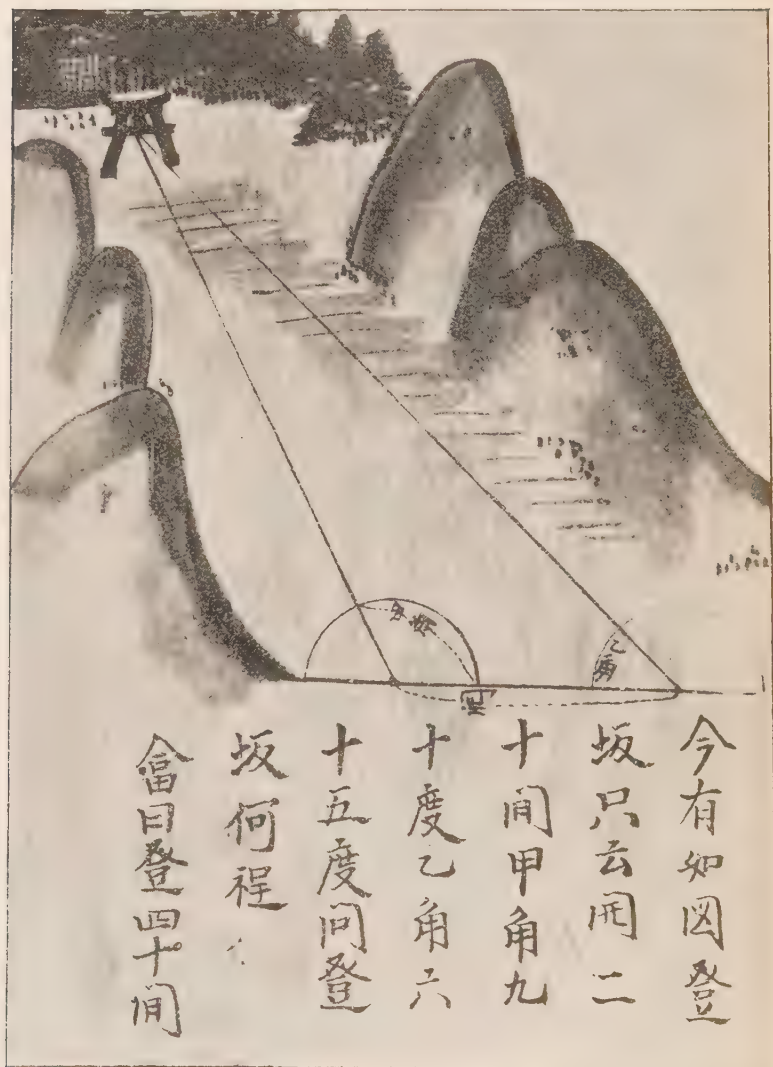 今有如図登
坂只云開二
十間甲角九
十度乙角六
十五度問登
坂何程
答曰登四十間
乙角
開